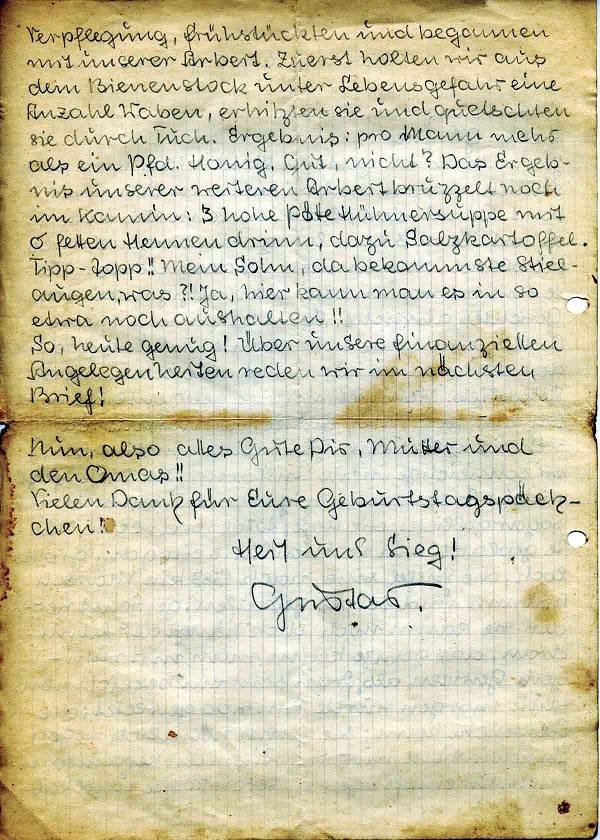 Verpflegung, frühstückten und begannen
mit unserer Arbeit. Zuerst holten wir aus
dem Bienenstock unter Lebensgefahr eine
Anzahl Waben, erhitzten sie und quetschten
sie durch Tuch. Ergebnis: pro Mann mehr
als ein Pfd. Honig. Gut, nicht? Das Ergeb-
nis unserer weiteren Arbeit bruzzelt noch
im Kamin: 3 hohe Pöte Hühnersuppe mit
6 fetten Hennen drinn, dazu Salzkartoffel.
Tipp-Topp!! Mein Sohn, da bekommste Stiel-
augen, was?! Ja, hier kann man es in so
etwa noch aushalten!!
So, heute genug! Über unsere finanziellen
Angelegenheiten reden wir im nächsten
Brief!
Nun, also alles Gute Dir, Mutter und
den Omas!!
Vielen Dank für Eure Geburtstagspäck-
chen!
Heil und Sieg!
Gustav.